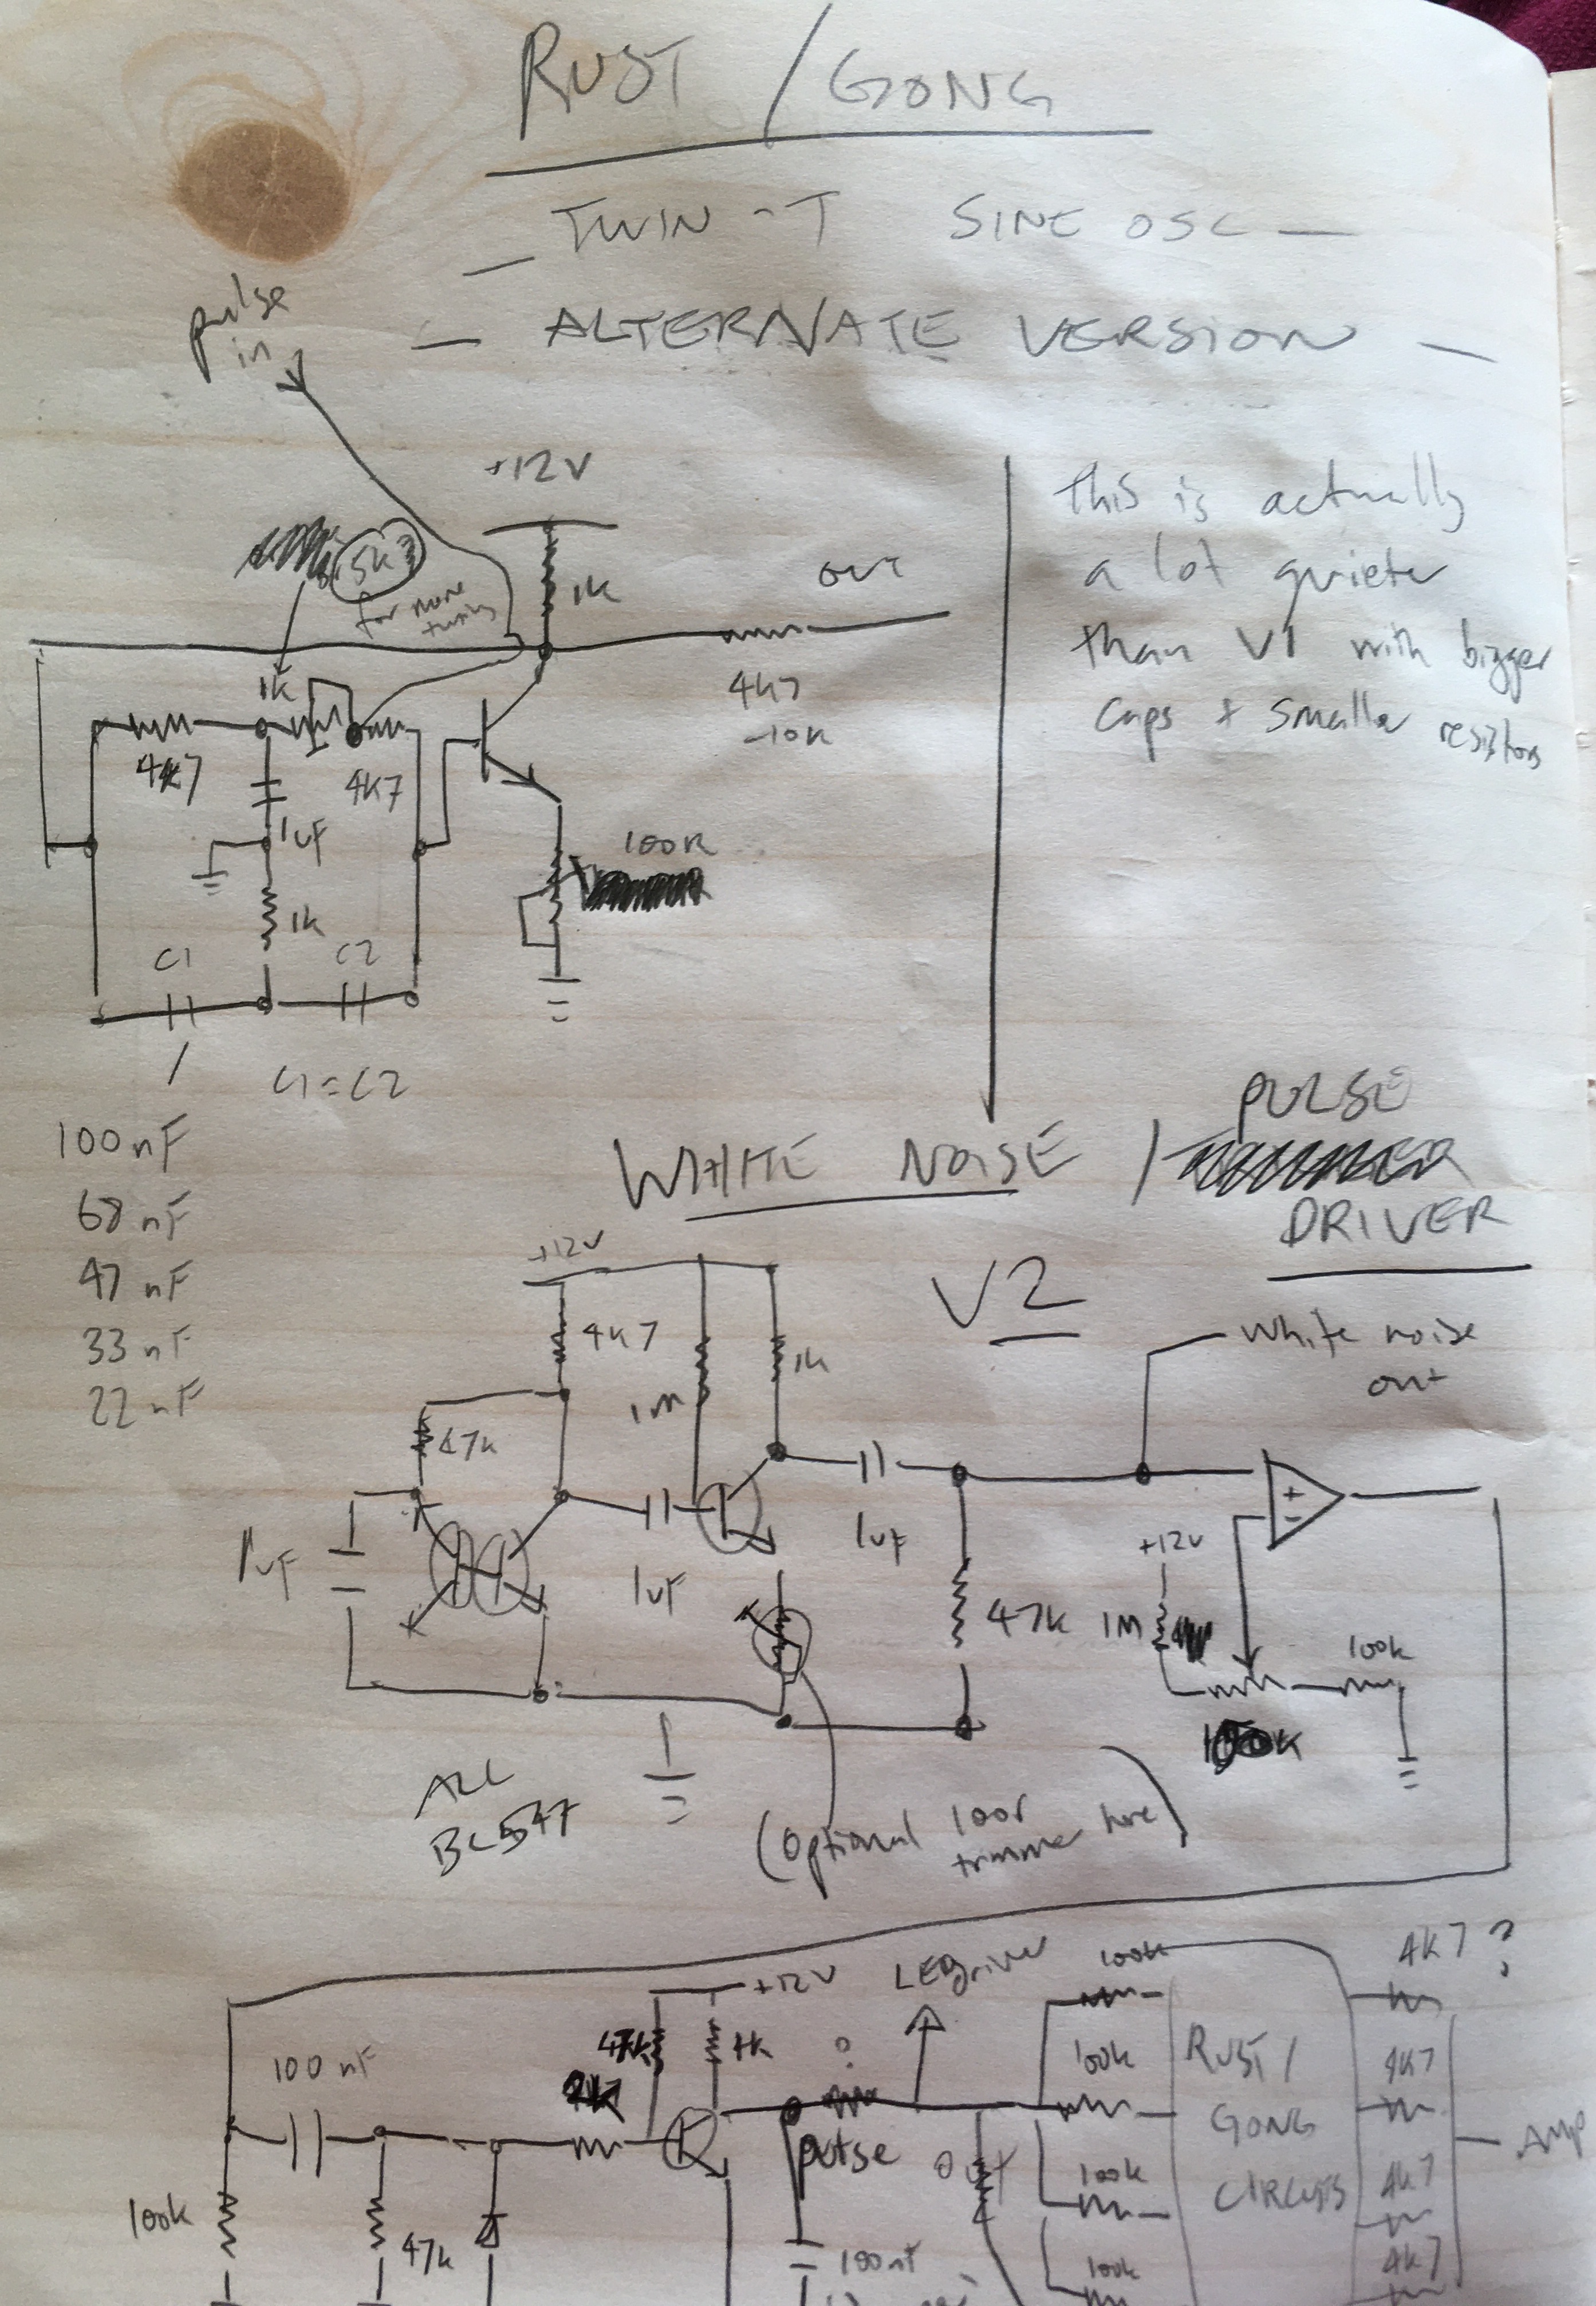 RUST / GONG
TWIN-T SINE OSC —
— ALTERNATE VERSION —
pulse
in
+12V
5K?
for more
tuning
1K
out
1K
4K7
4K7
4K7
-10K
1uF
100R
1K
C1
C2
C1=C2
100nF
68nF
47nF
33nF
22nF
This is actually
a lot quieter
than V1 with bigger
caps + smaller resistors
WHITE NOISE / PULSE
DRIVER
V2
+12V
4K7
1M
1K
47K
1uF
1uF
1uF
47K
White noise
out
+
-
+12V
1M
100k
ALL
BC547
(Optional 100r
trimmer here)
100nF
100k
47k
+12V
47k
1k
?
pulse
out
100nF
LED driver
100k
100k
100k
100k
RUST /
GONG
CIRCUITS
4K7?
4K7
4K7
4K7
Amp